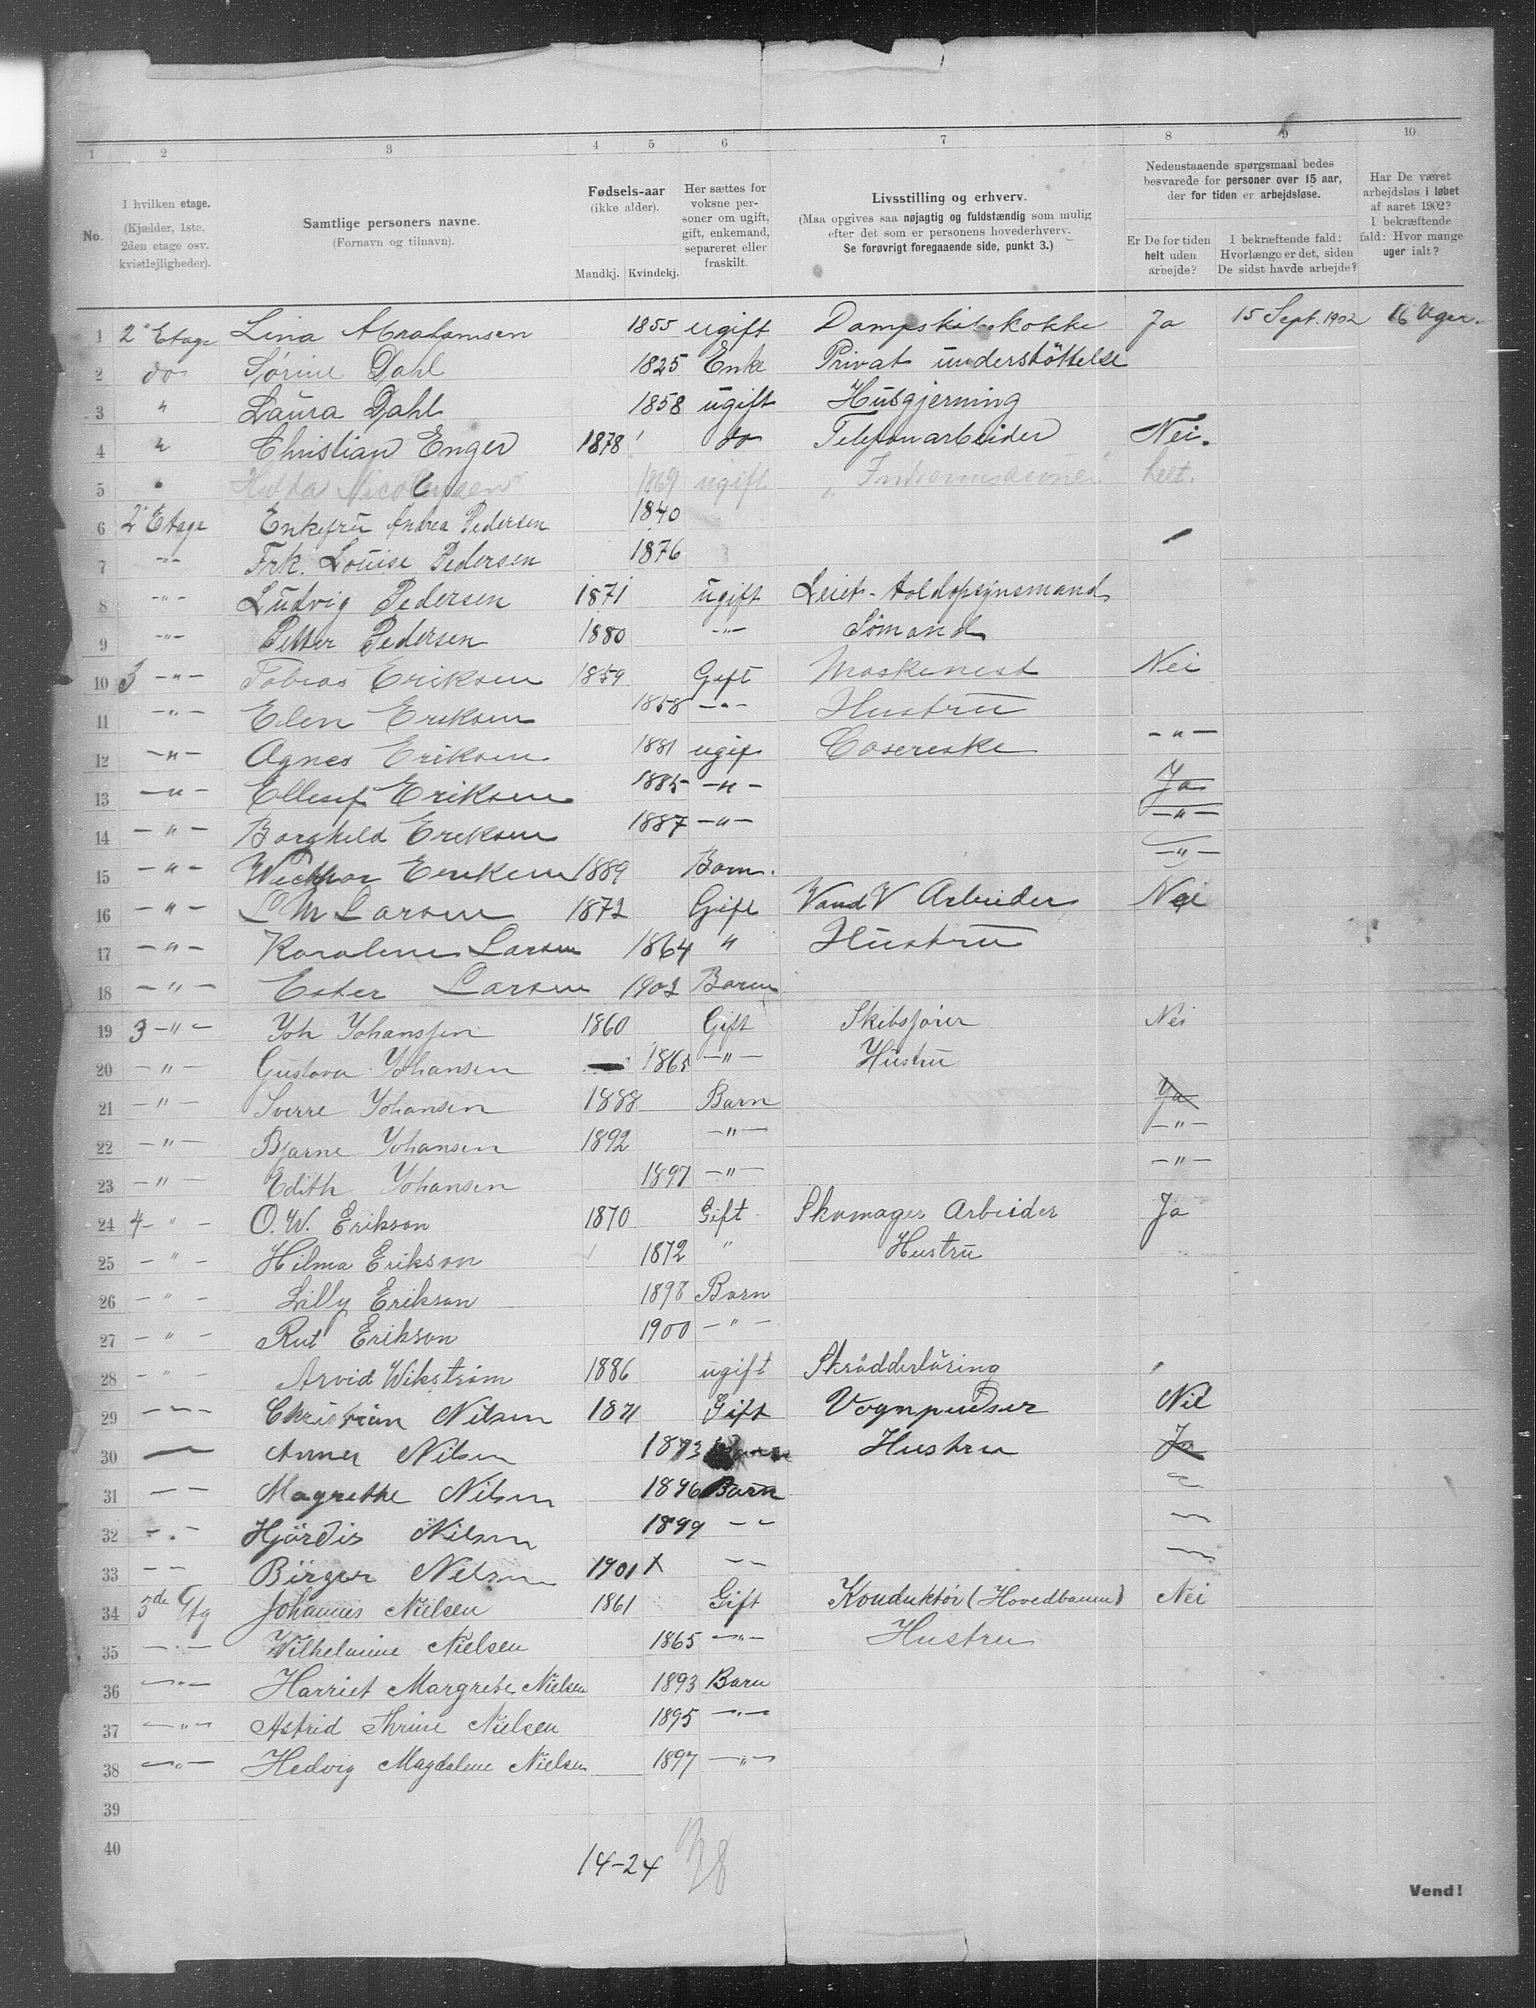 1 2 3 4 5 6 7 8 9 10
No.
I hvilken etage. (Kjælder, 1ste, 2den etage osv. kvistlejligheder).
Samtlige personers navne. (Fornavn og tilnavn).
Fødsels-aar (ikke alder). Mandkj. Kvindekj.
Her sættes for voksne personer om ugift, gift, enkemand, separeret eller fraskilt.
Livsstilling og erhverv. (Maa opgives saa nøjagtig og fuldstændig som mulig efter det som er personens hovederhverv. Se forøvrigt foregaaende side, punkt 3.)
Nedenstaaende spørgsmaal bedes besvarede for personer over 15 aar, der for tiden er arbejdsløse.
Er De for tiden helt uden arbejde?
I bekræftende fald: Hvorlænge er det, siden De sidst havde arbejde?
Har De været arbejdsløs i løbet af aaret 1902? I bekræftende fald: Hvor mange uger ialt?
1 2' Etage Lina Abrahamsen 1855 ugift Dampskibskokke Ja 15 Sept. 1902 16 Uger.
2 do Sørine Dahl 1825 Enke Privat understöttelse
3 " Laura Dahl 1858 ugift Husgjerning
4 " Christian Enger 1878 do Telefonarbeider Nei.
5 " Hulda Nicolaysen 1869 ugift " helt.
6 2' Etage Enkefru Andrea Pedersen 1840
7 -"- Frk. Louise Pedersen 1876
8 -"- Ludvig Pedersen 1871 ugift Leiet-toldopsynsmand
9 -"- Petter Pedersen 1880 -"- Sømand
10 3 -"- Tobias Eriksen 1859 Gift Maskenest Nei
11 -"- Elen Eriksen 1858 -"- Hustru
12 -"- Agnes Eriksen 1881 ugif -"-
13 -"- Ellesef Eriksen 1885 -"- Ja
14 -"- Borghild Eriksen 1887 -"- -"-
15 -"- Eriksen 1889 Barn. -"-
16 -"- Larsen 1872 Gift Vand V Arbeider Nei
17 -"- Karoline Larsen 1864 " Hustru
18 -"- Ester Larsen 1902 Baren
19 3 -"- Joh Johansen 1860 Gift Skibsfører Nei
20 -"- Gustava Johansen 1865 -"- Hustru
21 -"- Sverre Johansen 1888 Barn Ja
22 -"- Bjarne Johansen 1892 -"- -"-
23 -"- Edith Johansen 1897 -"- -"-
24 4 - " - O. W. Erikson 1870 Gift Skomager Arbeider Ja
25 - " - Hilma Erikson 1872 " Hustru
26 - " - Lilly Erikson 1898 Barn
27 - " - Rut Erikson 1900 - " -
28 - " - Arvid Wikström 1886 ugift Skrädderläring
29 -"- Christian Nilsen 1871 Gift Vognpudser Nil
30 — Anna Nilsen 1873 Hustru Ja
31 -- Magrethe Nilsen 1896 Barn
32 -.- Hjördis Nilsen 1899 --
33 -- Birger Nilsen 1901 x --
34 3de Etg Johannes Nielsen 1861 Gift Konduktør (Hovedbanen) Nei
35 -"- Wilhelmine Nielsen 1865 -"- Hustru
36 -"- Harriet Margrete Nielsen 1893 Barn
37 -"- Astrid Thrine Nielsen 1895 -"-
38 -"- Hedvig Magdalene Nielsen 1897 -"-
39
40
14-24 38
Vend!